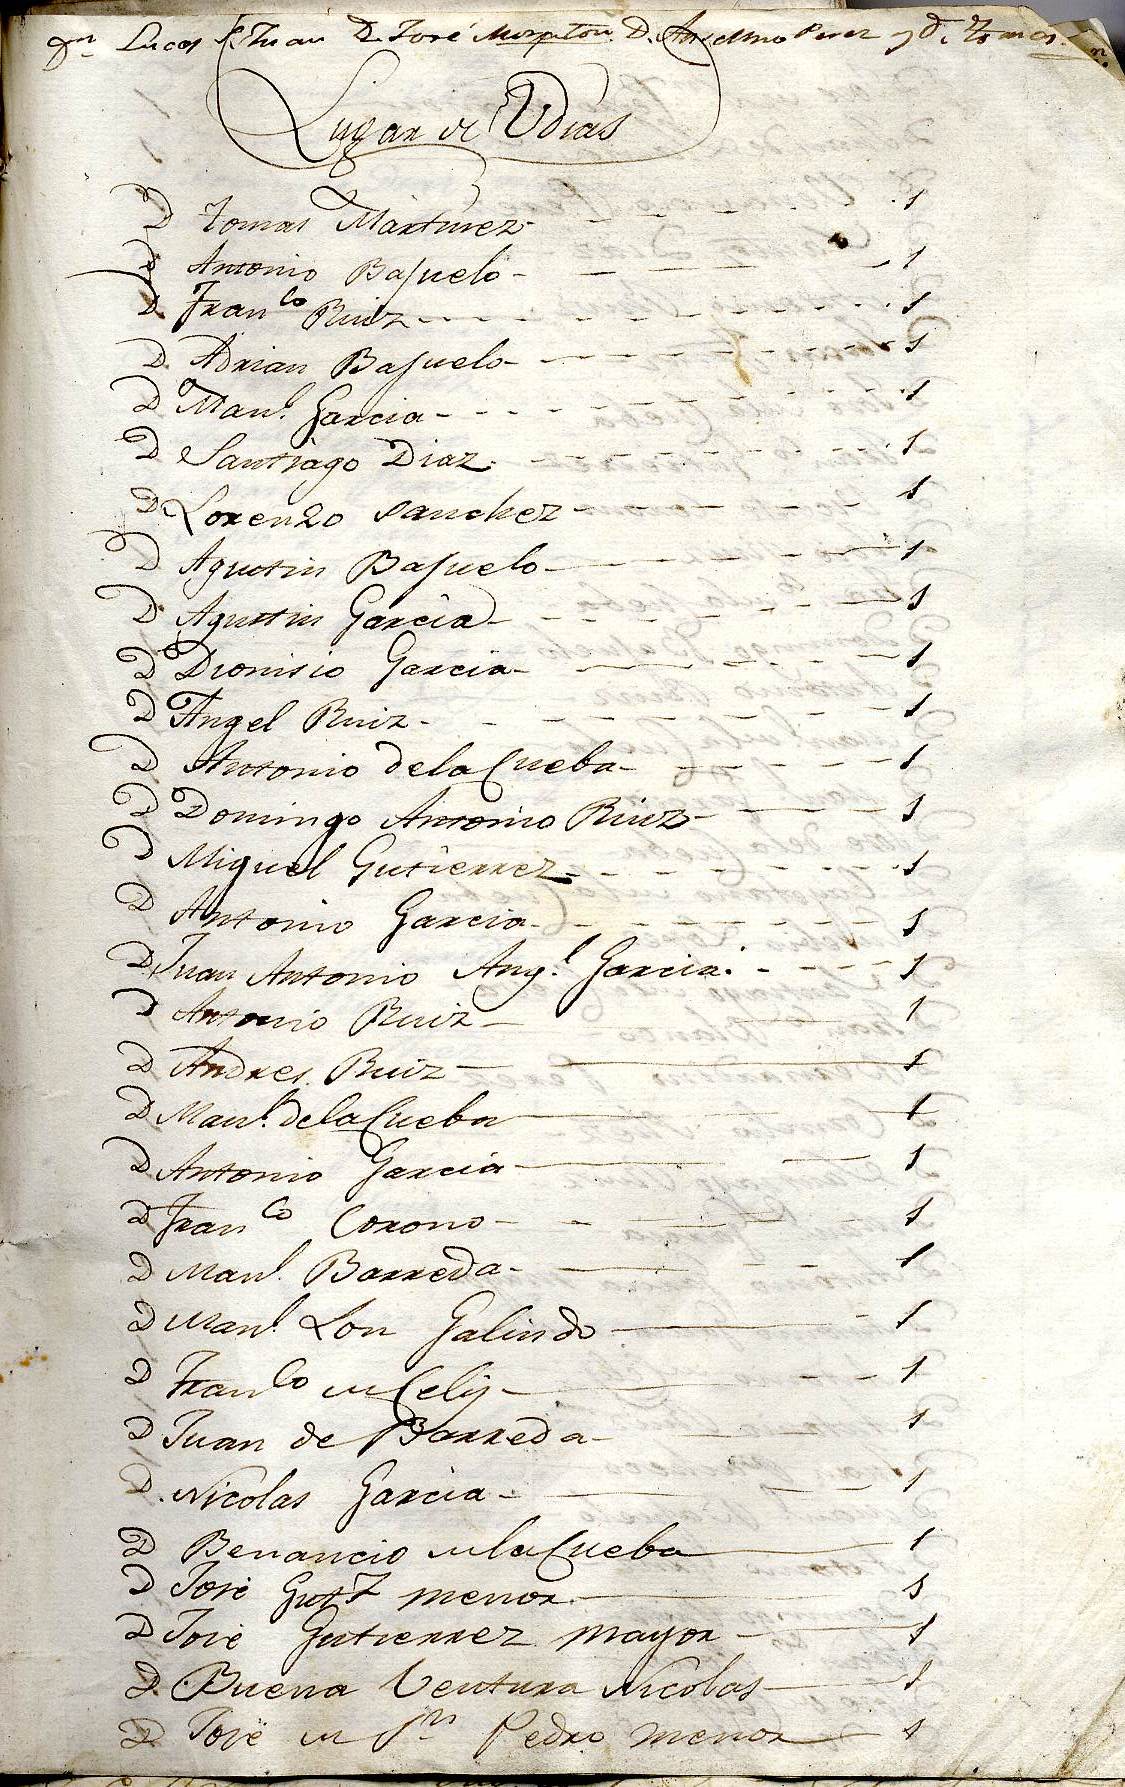 Dn Lucas S. Juan D. José D. Anselmo Perez y D. Tomas
Lugar de Udias
D Tomas Martinez - 1
D Antonio Bajuelo - 1
D. Franco Ruiz - 1
D. Adrian Bajuelo - 1
D Manl. Garcia - 1
D Santiago Diaz - 1
D Lorenzo Sanchez - 1
D Agustin Bajuelo - 1
D Agustin Garcia - 1
D Dionisio Garcia - 1
D Angel Ruiz - 1
D Antonio dela Cueba - 1
D Domingo Antonio Ruiz - 1
D Miguel Gutierrez - 1
D Antonio Garcia - 1
D Juan Antonio Angl. Garcia - 1
D Antonio Ruiz - 1
D Andres Ruiz - 1
D Manl. dela Cueba - 1
D Antonio Garcia - 1
D Franco Corono - 1
D Manl. Barreda - 1
D Manl. Lon Galindo - 1
D Franco de Celis - 1
D Juan de Barreda - 1
D. Nicolas Garcia - 1
D Benancio dela Cueba - 1
D José Gutz menor - 1
D José Gutierrez mayor - 1
D. Buena Ventura Nicolas - 1
D José de Sn Pedro menor - 1